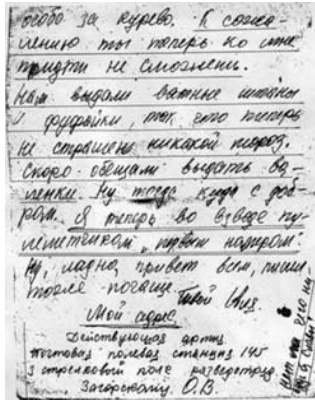 особо за курево. К сожа-
лению ты теперь ко мне
придти не сможешь.
Нам выдали ватные штаны
и фуфайки, так что теперь
не страшен никакой мороз.
Скоро обещали выдать ва-
ленки. Ну тогда куда с доб-
ром. Я теперь во взводе пу-
леметчиком, первым номером.
Ну, ладно, привет всем, пиши
почаще. Твой
Мой адрес
Действующая армия
почтовая полевая станция 145
3 стрелковый полк разведотряд
Загорскому О.В.